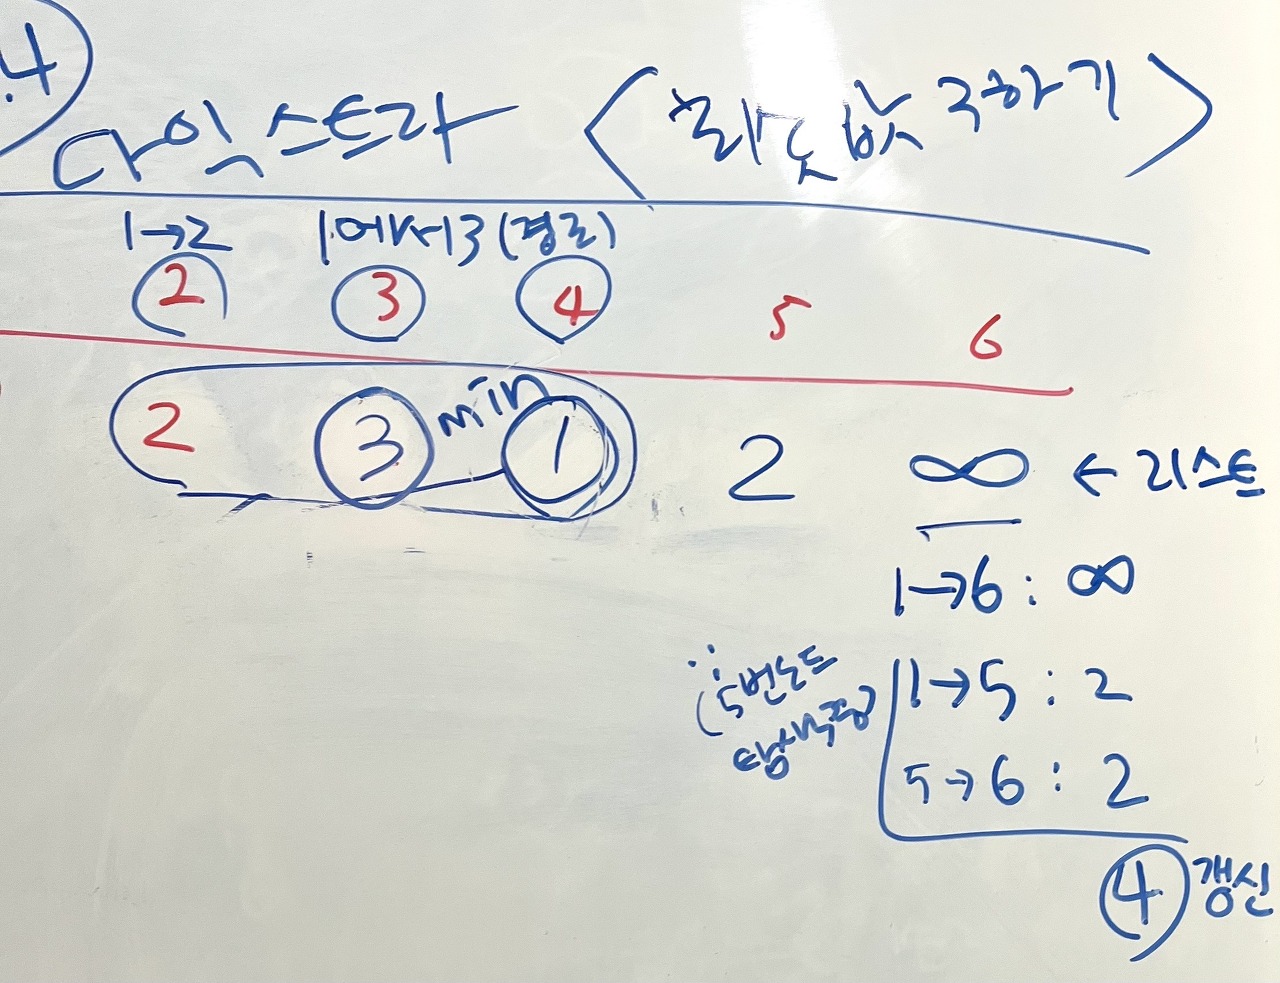 .4
다익스트라 <최솟값 구하기>
1→2 1에서3 (경로)
2 3 4 5 6
2 3 min 1 2 ∞ ← 리스트
1→6 : ∞
∵ (5번노드 탐색중)
1→5 : 2
5→6 : 2
4 갱신